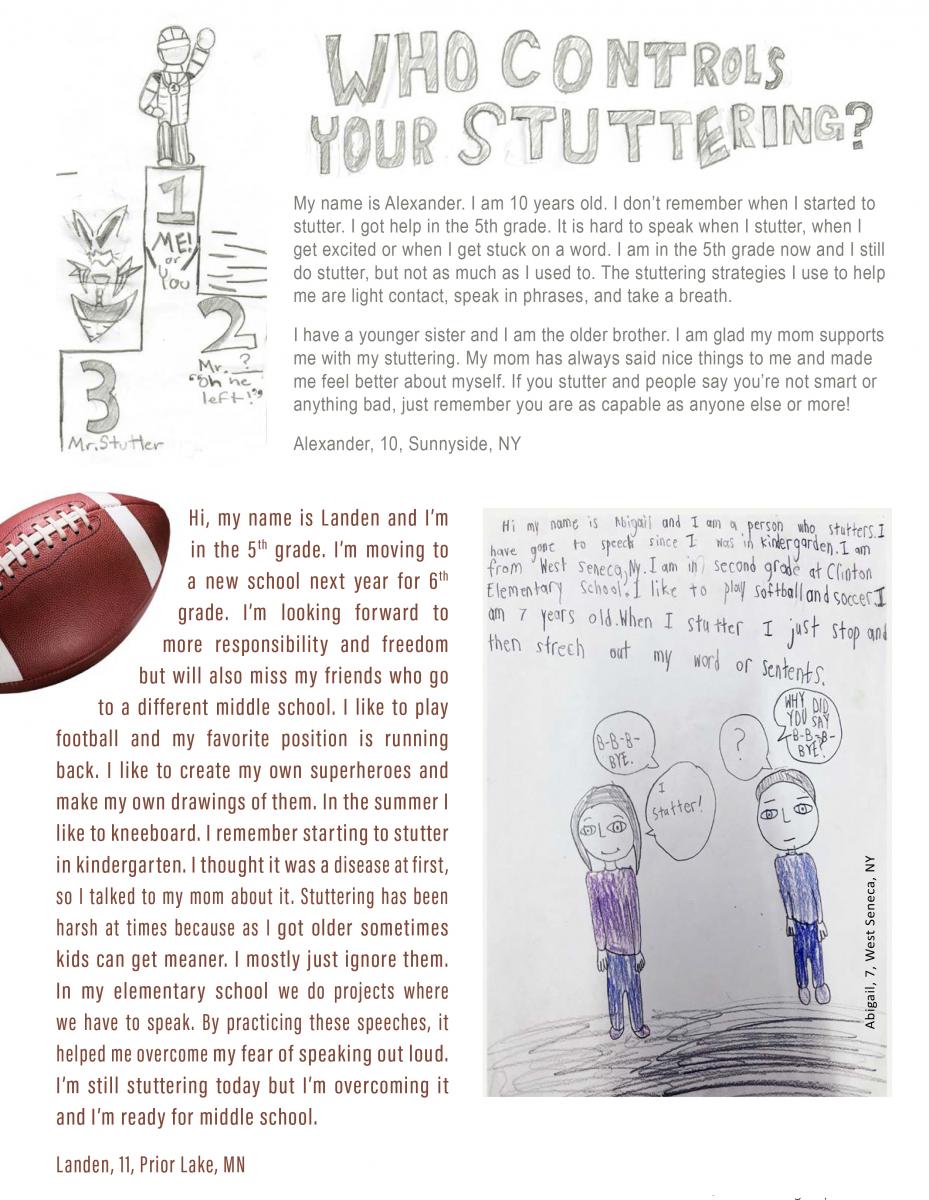 WHO CONTROLS
YOUR STUTTERING?
1
ME!
or
You
2
Mr. ?
"oh he
left!"
3
Mr. Stutter
My name is Alexander. I am 10 years old. I don't remember when I started to
stutter. I got help in the 5th grade. It is hard to speak when I stutter, when I
get excited or when I get stuck on a word. I am in the 5th grade now and I still
do stutter, but not as much as I used to. The stuttering strategies I use to help
me are light contact, speak in phrases, and take a breath.
I have a younger sister and I am the older brother. I am glad my mom supports
me with my stuttering. My mom has always said nice things to me and made
me feel better about myself. If you stutter and people say you're not smart or
anything bad, just remember you are as capable as anyone else or more!
Alexander, 10, Sunnyside, NY
Hi, my name is Landen and I'm
in the 5th grade. I'm moving to
a new school next year for 6th
grade. I'm looking forward to
more responsibility and freedom
but will also miss my friends who go
to a different middle school. I like to play
football and my favorite position is running
back. I like to create my own superheroes and
make my own drawings of them. In the summer I
like to kneeboard. I remember starting to stutter
in kindergarten. I thought it was a disease at first,
so I talked to my mom about it. Stuttering has been
harsh at times because as I got older sometimes
kids can get meaner. I mostly just ignore them.
In my elementary school we do projects where
we have to speak. By practicing these speeches, it
helped me overcome my fear of speaking out loud.
I'm still stuttering today but I'm overcoming it
and I'm ready for middle school.
Landen, 11, Prior Lake, MN
Hi my name is Abigail and I am a person who stutters. I
have gone to speech since I was in kindergarden. I am
from West Seneca, Ny. I am in second grade at Clinton
Elementary School. I like to play softball and soccer. I
am 7 years old. When I stutter I just stop and
then strech out my word or sentents.
B-B-B-
BYE.
I
Stutter!
?
WHY DID
YOU SAY
B-B-B-
BYE?
Abigail, 7, West Seneca, NY